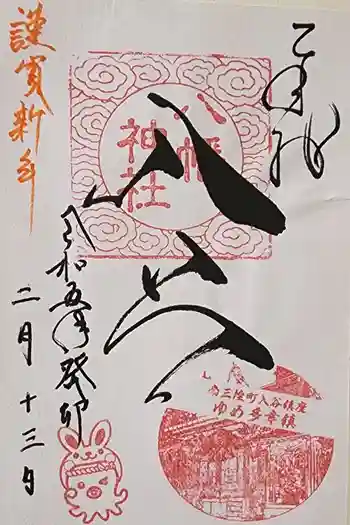 奉拝
八幡
神社
入谷
謹賀新年
令和五年癸卯
二月十三日
南三陸町入谷鎮座
ゆめ多幸鎮